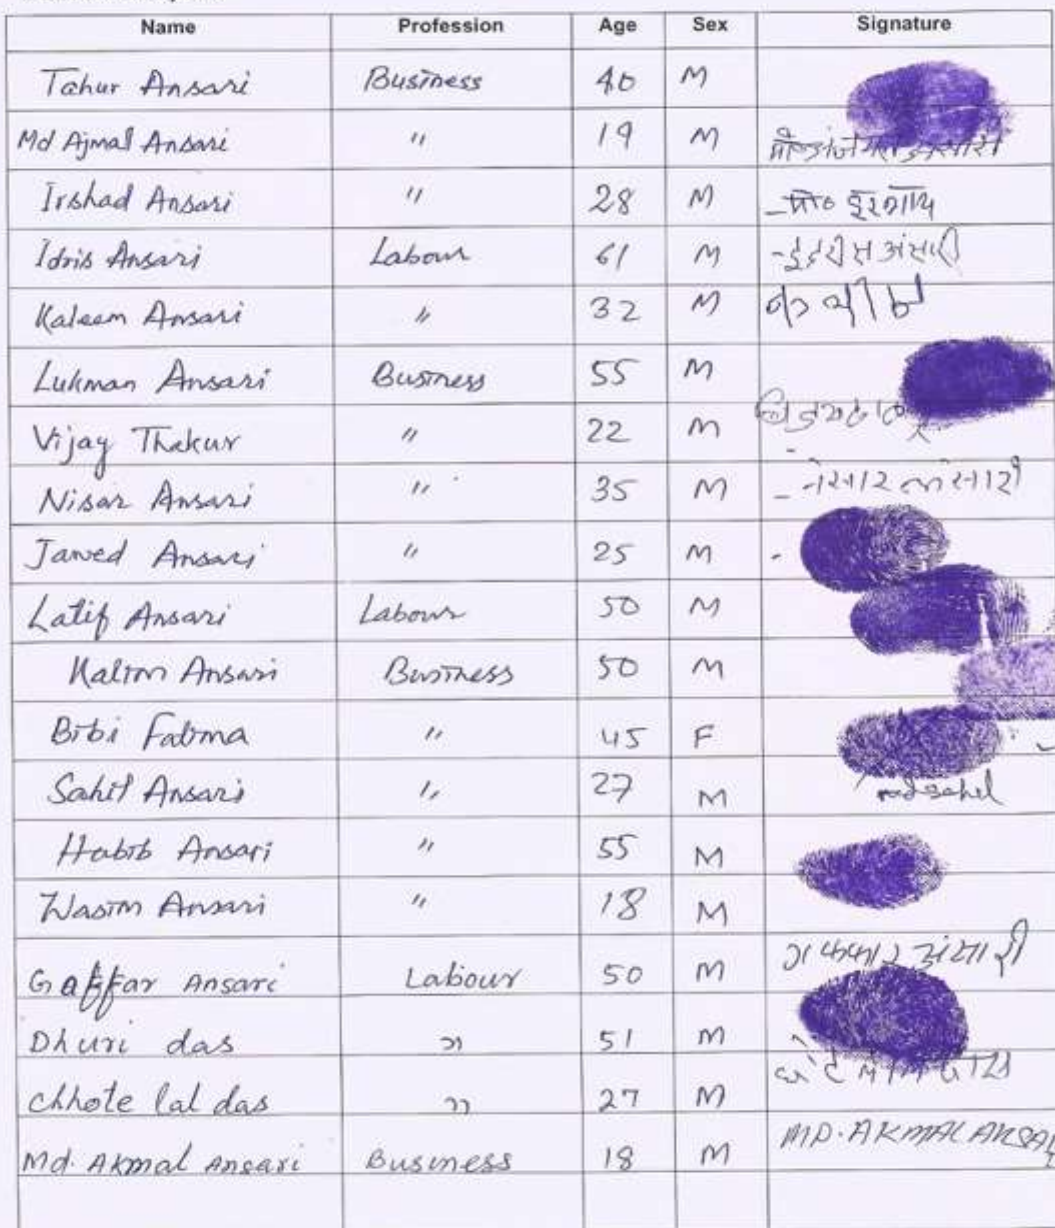 Name Profession Age Sex Signature
Tahur Ansari Business 40 M
Md Ajmal Ansari " 19 M
Irshad Ansari " 28 M मो०
Idris Ansari Labour 61 M अंसारी
Kaleem Ansari " 32 M
Lukman Ansari Business 55 M
Vijay Thakur " 22 M
Nisar Ansari " 35 M
Jawed Ansari " 25 M
Latif Ansari Labour 50 M
Kalim Ansari Business 50 M
Bibi Fatima " 45 F
Sahil Ansari " 27 M md sahel
Habib Ansari " 55 M
Wasim Ansari " 18 M
Gaffar Ansari Labour 50 M गफ्फार अंसारी
Dhuri das " 51 M
Chhote lal das " 27 M
Md. Akmal Ansari Business 18 M MD. AKMAL ANSARI